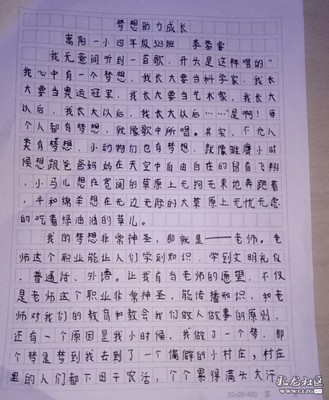 梦想助力成长
嵩阳一小四年级323班 李
我无意间听到一首歌，开头是这样唱的"
我心中有一个梦想，我长大要当科学家，我长
大要当奥运冠军，我长大要当艺术家，我长大
以后，我长大以后，我长大以后……"是啊！每
个人都有梦想，就像歌中所唱。其实，不光人
类有梦想，小动物们也有梦想，就像雏鹰小时
候想跟爸爸妈妈在天空中自由自在的翱翔飞翔，
小马儿想在宽阔的草原上无拘无束地奔跑着
，牛和绵羊想在无边无际的大草原上无忧无虑
的吃着绿油油的草儿。
我的梦想非常神圣，那就是——老师。老
师这个职业能让人们学到知识，学到文明礼仪
、普通话、外语。让我有当老师的愿望，不仅
是老师这个职业非常神圣，能传播知识，和老
师对我们的教育和教会我们做人做事的原则，
还有一个原因是我小时候，我做了一个梦，那
个梦是梦到我去到了一个偏僻的小村庄，村庄
里的人们都下田干农活，个个累得满头大汗，
20×20=400
乳龙社区